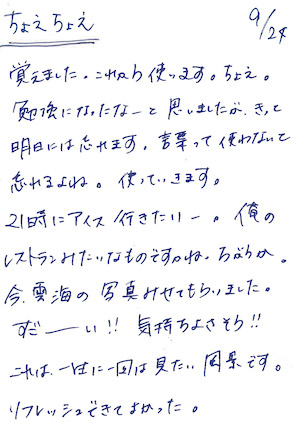 ちょえちょえ
9/24
覚えました。これから使います。ちょえ。
勉強になったなーと思いましたが、きっと
明日には忘れます。言葉って使わないと
忘れるよね。使っていきます。
21時にアイス行きたいー。俺の
レストランみたいなものですかね。ちがうか。
今、雲海の写真みせてもらいました。
すごーーい!!気持ちよさそう!!
これは、一生に一回は見たい風景です。
リフレッシュできてよかった。